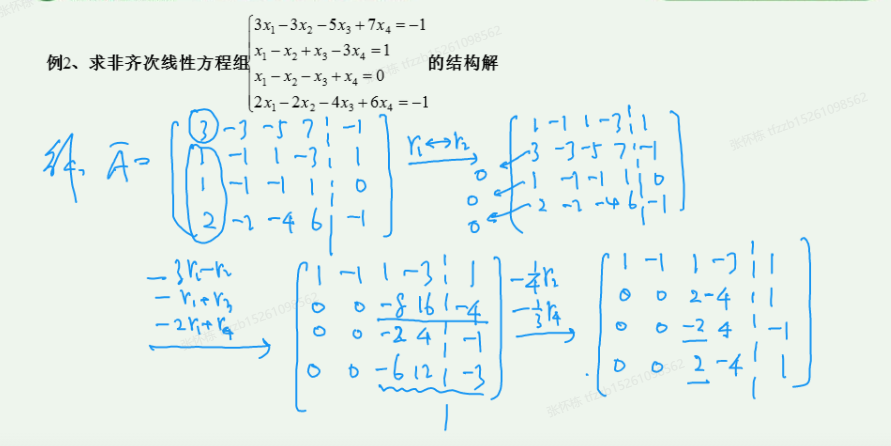 例2、求非齐次线性方程组 的结构解
3x₁-3x₂-5x₃+7x₄=-1
x₁-x₂+x₃-3x₄=1
x₁-x₂-x₃+x₄=0
2x₁-2x₂-4x₃+6x₄=-1
解, Ā=
3 -3 -5 7 | -1
1 -1 1 -3 | 1
1 -1 -1 1 | 0
2 -2 -4 6 | -1
r₁↔r₂
1 -1 1 -3 | 1
0 3 -3 -5 7 | -1
0 1 -1 -1 1 | 0
0 2 -2 -4 6 | -1
-3r₁-r₂
-r₁+r₃
-2r₁+r₄
1 -1 1 -3 | 1
0 0 -8 16 | -4
0 0 -2 4 | -1
0 0 -6 12 | -3
-¼r₂
-⅓r₄
1 -1 1 -3 | 1
0 0 2 -4 | 1
0 0 -2 4 | -1
0 0 2 -4 | 1
张怀栋 tfzzb15261098562